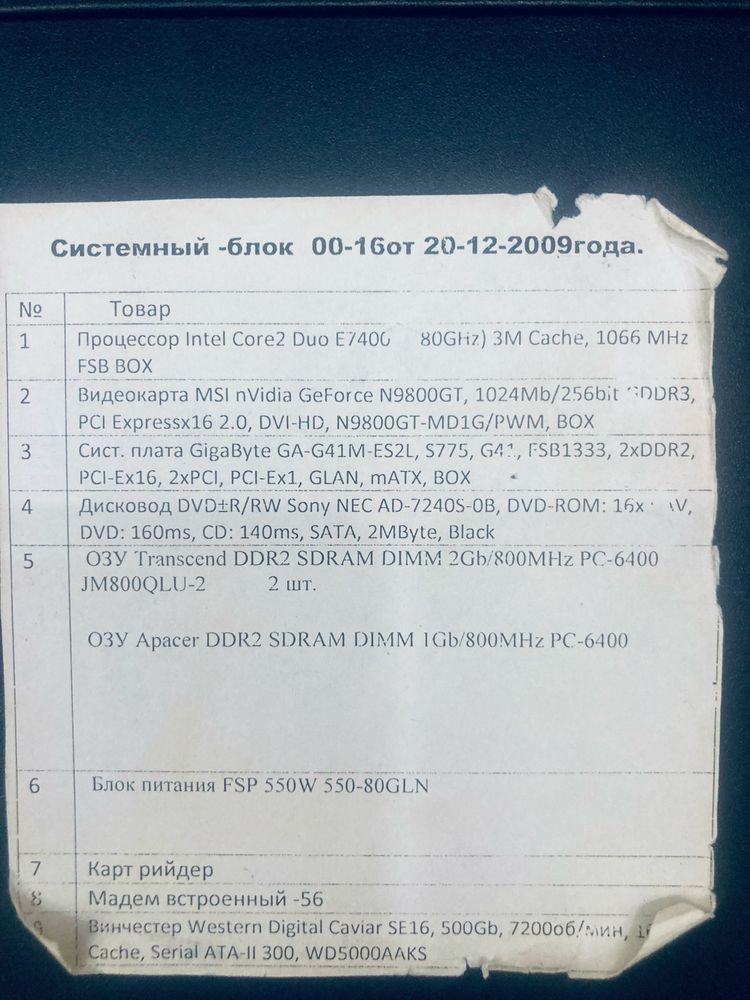 Системный -блок 00-16от 20-12-2009года.
№ Товар
1 Процессор Intel Core2 Duo E7400 80GHz) 3M Cache, 1066 MHz
FSB BOX
2 Видеокарта MSI nVidia GeForce N9800GT, 1024Mb/256bit GDDR3,
PCI Expressx16 2.0, DVI-HD, N9800GT-MD1G/PWM, BOX
3 Сист. плата GigaByte GA-G41M-ES2L, S775, G41, FSB1333, 2xDDR2,
PCI-Ex16, 2xPCI, PCI-Ex1, GLAN, mATX, BOX
4 Дисковод DVD±R/RW Sony NEC AD-7240S-0B, DVD-ROM: 16x
DVD: 160ms, CD: 140ms, SATA, 2MByte, Black
5 ОЗУ Transcend DDR2 SDRAM DIMM 2Gb/800MHz PC-6400
JM800QLU-2 2 шт.
ОЗУ Apacer DDR2 SDRAM DIMM 1Gb/800MHz PC-6400
6 Блок питания FSP 550W 550-80GLN
7 Карт рийдер
8 Мадем встроенный -56
9 Винчестер Western Digital Caviar SE16, 500Gb, 7200об/мин,
Cache, Serial ATA-II 300, WD5000AAKS